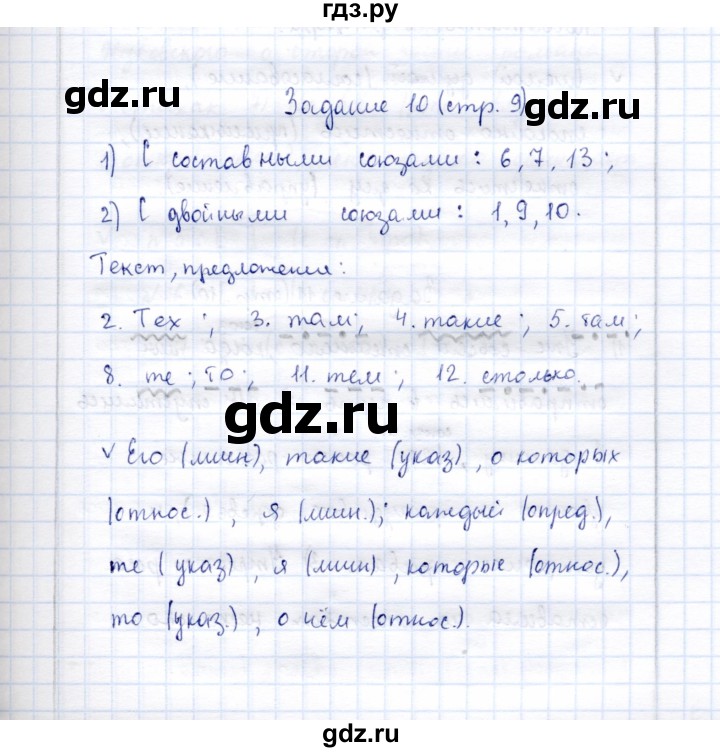 гдз.ру
gdz.ru
gdz.ru
Задание 10 (стр. 9)
1) С составными союзами: 6, 7, 13;
2) С двойными союзами: 1, 9, 10.
Текст, предложения:
2. Тех; 3. там; 4. такие; 5. там;
8. те; то; 11. тем; 12. столько.
gdz.ru
√ Его (личн), такие (указ), о которых
(относ.), я (личн.); каждый (опред.),
те (указ), я (личн), которые (относ.),
то (указ.), о чём (относ.).
gdz.ru
gdz.ru